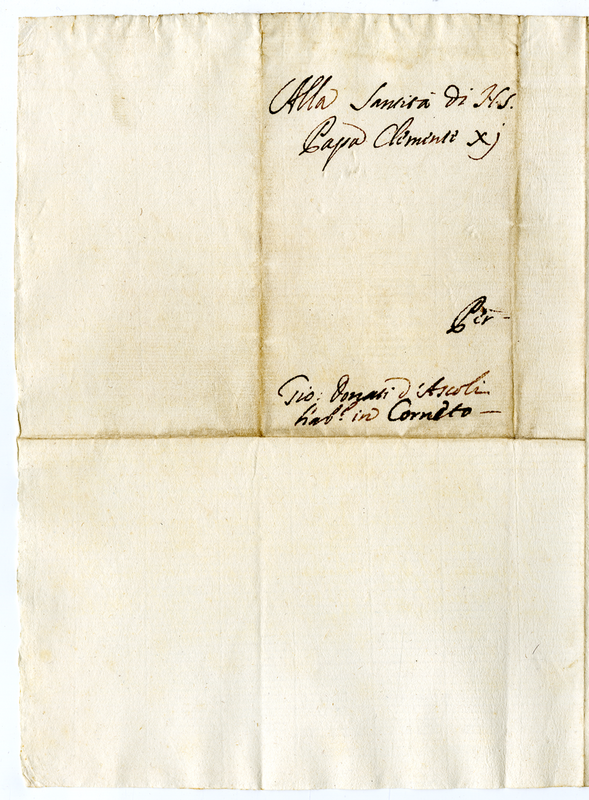 Alla Santità di N.S.
Papa Clemente xj
Per
Gio: Donati d'Ascoli
hab.e in Corneto